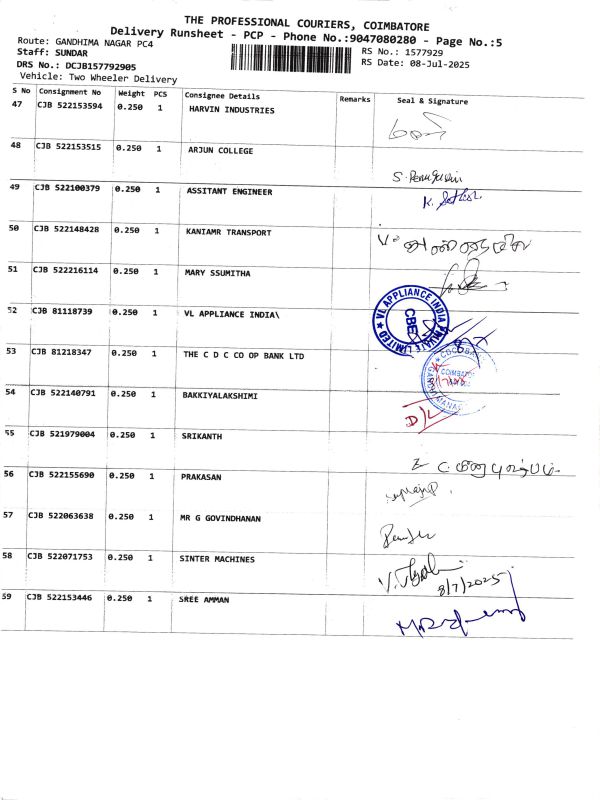 THE PROFESSIONAL COURIERS, COIMBATORE
Delivery Runsheet - PCP - Phone No.:9047080280 - Page No.:5
Route: GANDHIMA NAGAR PC4
Staff: SUNDAR
RS No.: 1577929
DRS No.: DCJB157792905
RS Date: 08-Jul-2025
Vehicle: Two Wheeler Delivery
S No Consignment No Weight PCS Consignee Details Remarks Seal & Signature
47 CJB 522153594 0.250 1 HARVIN INDUSTRIES
48 CJB 522153515 0.250 1 ARJUN COLLEGE
49 CJB 522100379 0.250 1 ASSITANT ENGINEER
50 CJB 522148428 0.250 1 KANIAMR TRANSPORT
51 CJB 522216114 0.250 1 MARY SSUMITHA
52 CJB 81118739 0.250 1 VL APPLIANCE INDIA\
VL APPLIANCE INDIA PRIVATE LIMITED
CBE
53 CJB 81218347 0.250 1 THE C D C CO OP BANK LTD
54 CJB 522140791 0.250 1 BAKKIYALAKSHIMI
D/L
55 CJB 521979004 0.250 1 SRIKANTH
56 CJB 522155690 0.250 1 PRAKASAN
57 CJB 522063638 0.250 1 MR G GOVINDHANAN
58 CJB 522071753 0.250 1 SINTER MACHINES
8/7/2025
59 CJB 522153446 0.250 1 SREE AMMAN